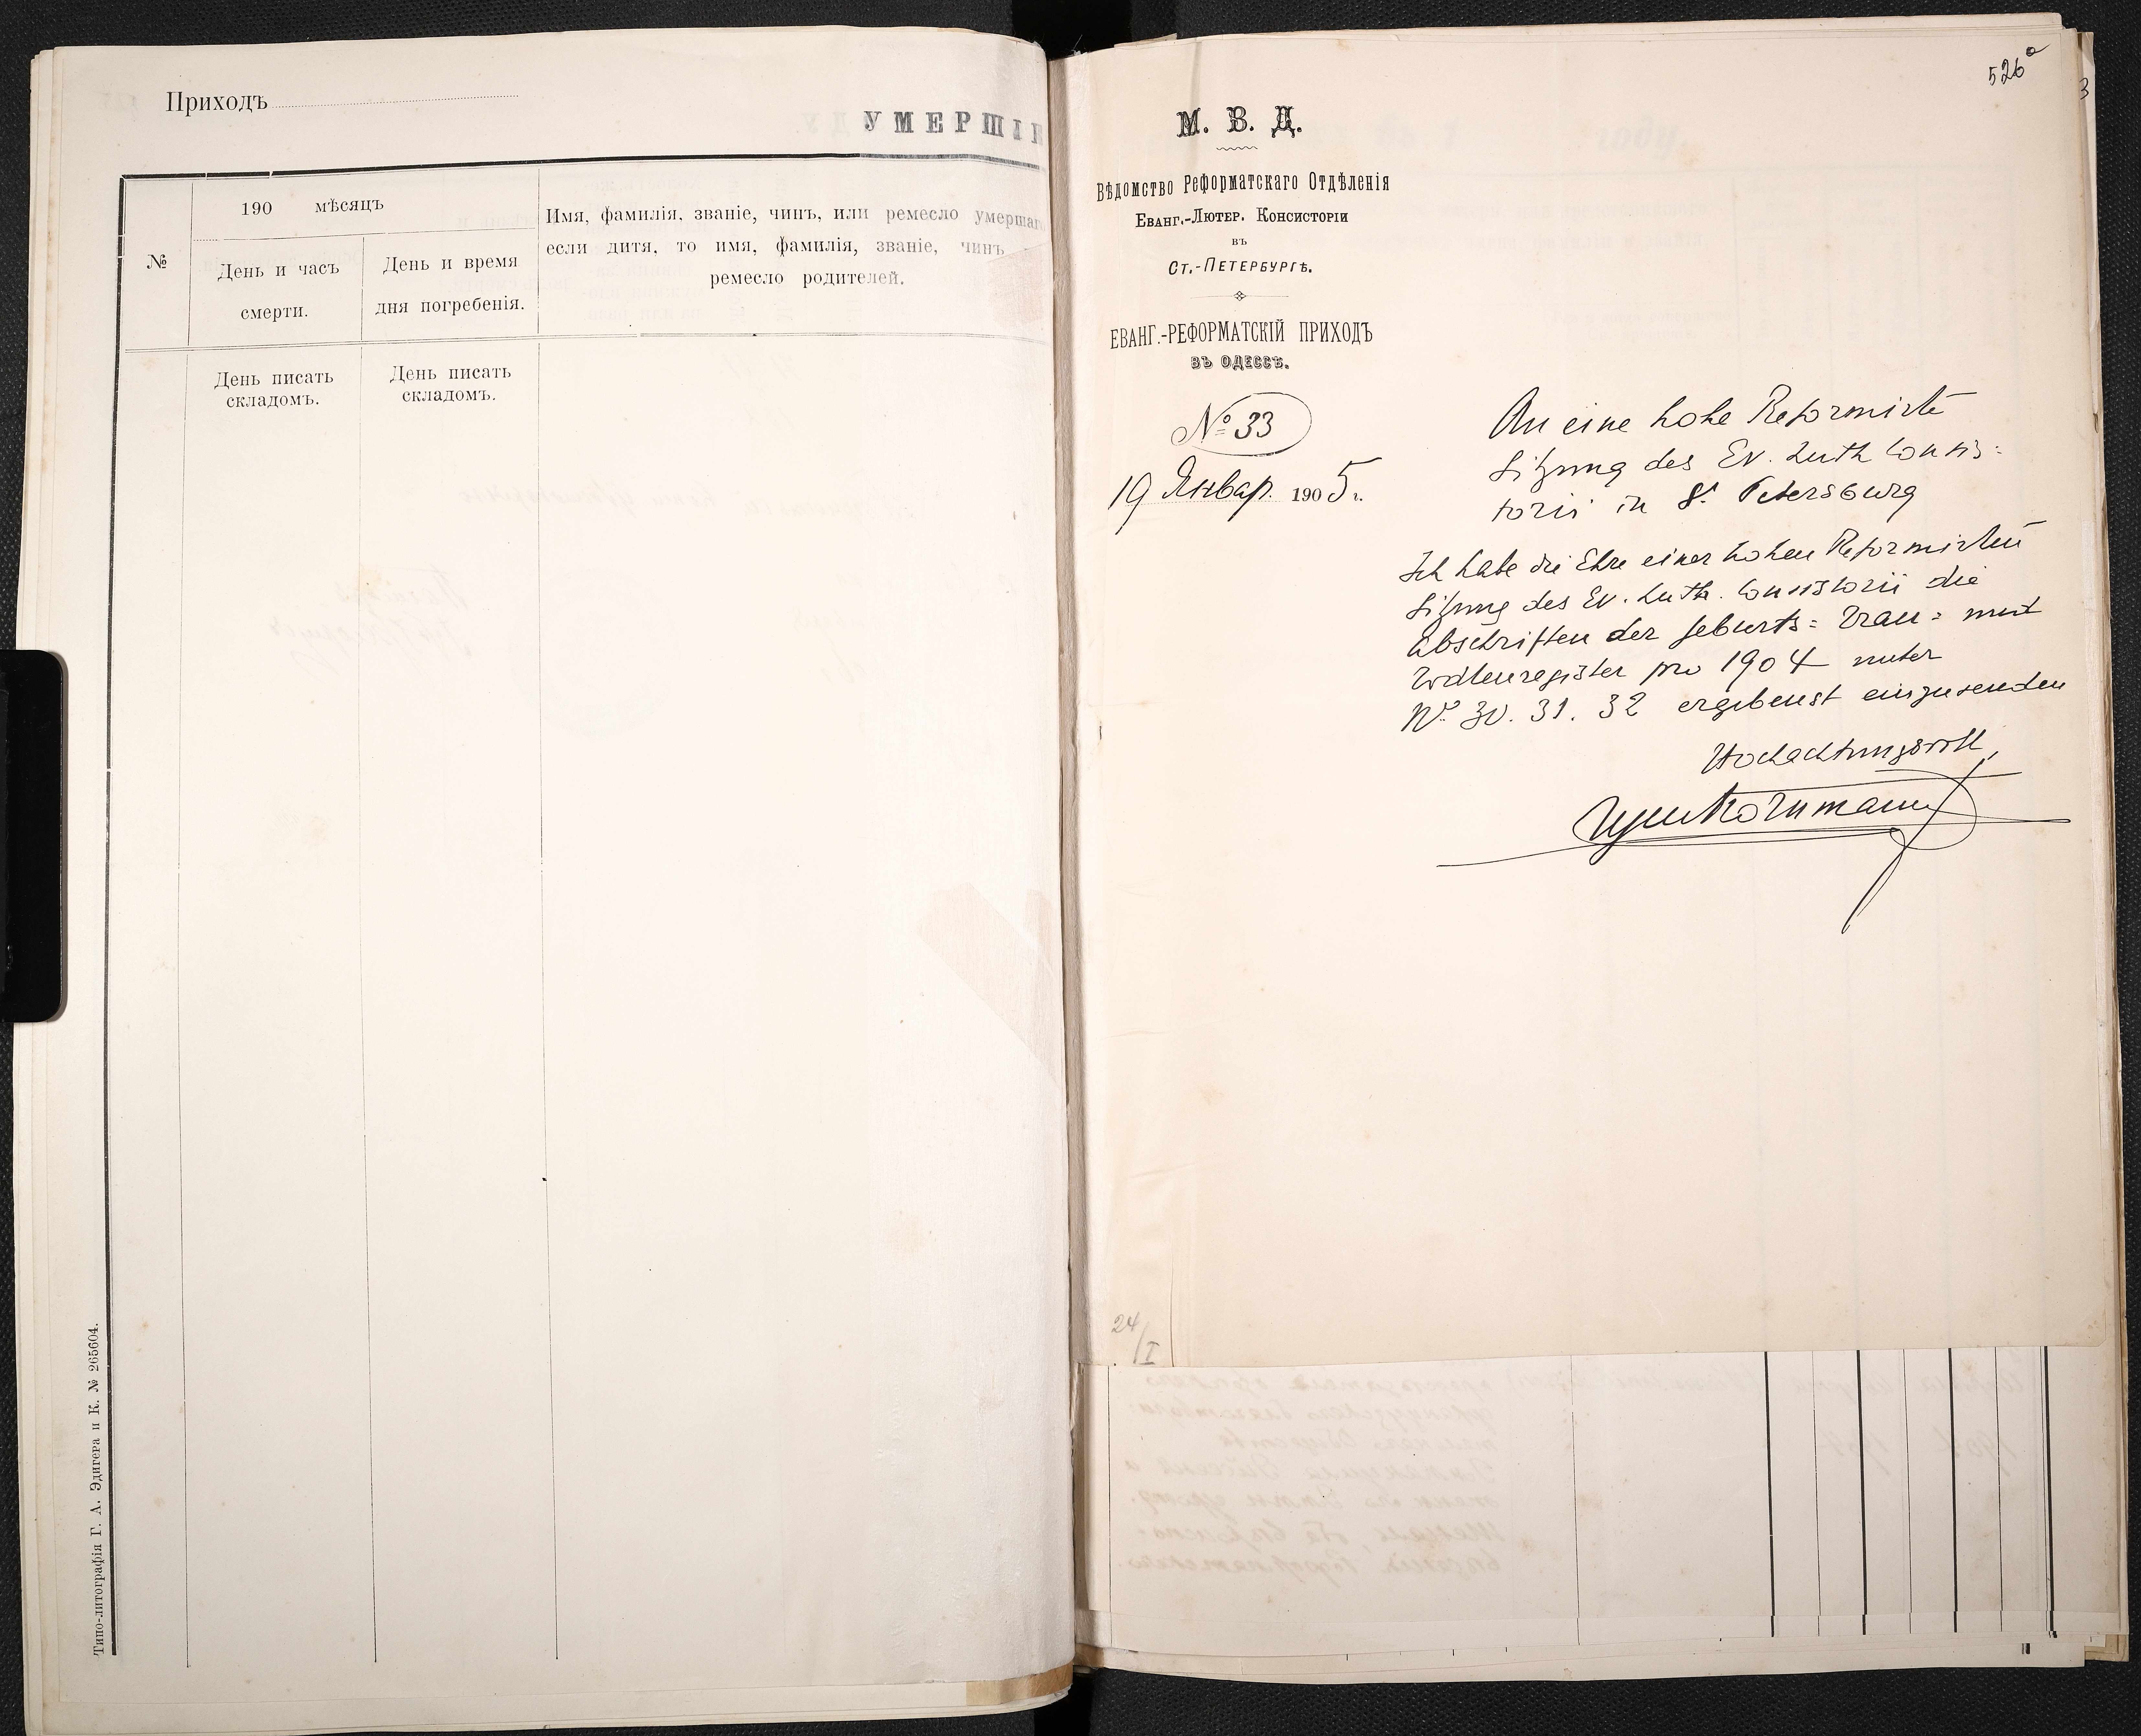 Приходъ
УМЕРШІ
№
190 мѣсяцъ
День и часъ
смерти.
День и время
дня погребенія.
Имя, фамилія, званіе, чинъ, или ремесло умершаг
если дитя, то имя, фамилія, званіе, чинъ
ремесло родителей.
День писать
складомъ.
День писать
складомъ.
Типо-литографія Г. А. Эдигера и К. № 265604.
526a
3
М. В. Д.
Вѣдомство Реформатскаго Отдѣленія
Еванг.-Лютер. Консисторіи
въ
Ст.-Петербургѣ.
ЕВАНГ.-РЕФОРМАТСКІЙ ПРИХОДЪ
ВЪ ОДЕССѢ.
№ 33
19 Январ. 1905 г.
An eine hohe Reformirte
Sitzung des Ev. Luth Consis=
torii in St. Petersburg
Ich habe die Ehre einer hohen Reformirten
Sitzung des Ev. Luth. Consistorii die
Abschriften der Geburts= Trau= und
Todtenregister pro 1904 unter
No. 30. 31. 32 ergebenst einzusenden
Hochachtungsvoll,
24/I